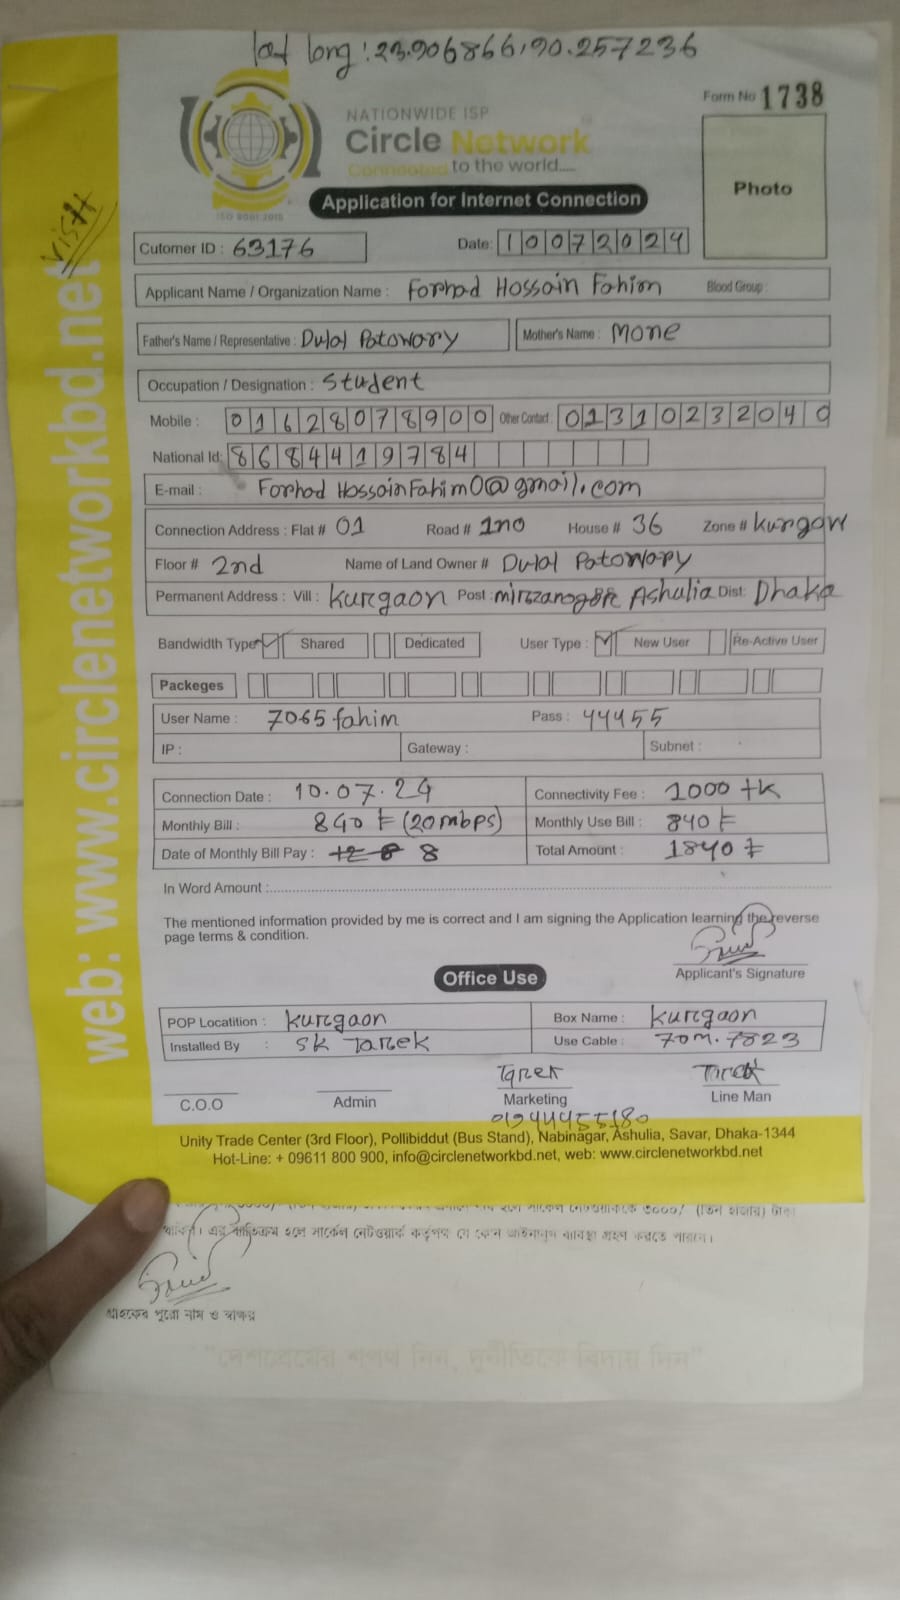 lat long: 23.906866,90.257236
Form No 1738
NATIONWIDE ISP
Circle Network
Connected to the world....
ISO 9001:2015
Photo
Application for Internet Connection
visit
Cutomer ID : 63176 Date: 10072024
Applicant Name / Organization Name : Forhad Hossain Fahim Blood Group :
Father's Name / Representative : Dulal Patowary Mother's Name : Mone
Occupation / Designation : Student
Mobile : 01628078900 Other Contact : 01310232040
National Id: 8684419784
E-mail : Forhad HossainFahim0@gmail.com
Connection Address : Flat # 01 Road # 1no House # 36 Zone # Kurgaw
Floor # 2nd Name of Land Owner # Dulal Patowary
Permanent Address : Vill : Kurgaon Post : Ashulia Dist: Dhaka
Bandwidth Type Shared Dedicated User Type : New User Re-Active User
Packeges
User Name : 7065fahim Pass : 44455
IP : Gateway : Subnet :
Connection Date : 10.07.24 Connectivity Fee : 1000 tk
Monthly Bill : 840 ৳ (20mbps) Monthly Use Bill : 840 ৳
Date of Monthly Bill Pay : 8 Total Amount : 1840 ৳
In Word Amount :
The mentioned information provided by me is correct and I am signing the Application learning the reverse
page terms & condition.
Applicant's Signature
Office Use
POP Locatition : Kurgaon Box Name : Kurgaon
Installed By : SK Tarek Use Cable : 70m. 7823
Tarek Tarek
C.O.O Admin Marketing Line Man
01944455180
Unity Trade Center (3rd Floor), Pollibiddut (Bus Stand), Nabinagar, Ashulia, Savar, Dhaka-1344
Hot-Line: + 09611 800 900, info@circlenetworkbd.net, web: www.circlenetworkbd.net
web: www.circlenetworkbd.net
সার্কেল নেটওয়ার্ককে ৩০০০/ (তিন হাজার) টাকা
থাকিব। এর ব্যতিক্রম হলে সার্কেল নেটওয়ার্ক কর্তৃপক্ষ যে কোন আইনানুগ ব্যবস্থা গ্রহণ করতে পারবে।
গ্রাহকের পুরো নাম ও স্বাক্ষর
"দেশপ্রেমের শপথ নিন, দুর্নীতিকে বিদায় দিন"